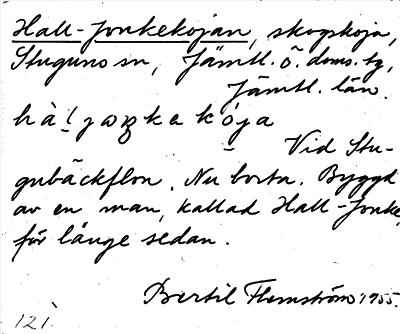 Hall-Jonkekojan, skogskoja,
Stuguns sn, Jämtl. ö. doms. tg,
Jämtl. län.
Vid Stu-
gubäckflon. Nu borta. Byggd
av en man, kallad Hall-Jonke,
för länge sedan.
Bertil Flemström 1955.
121